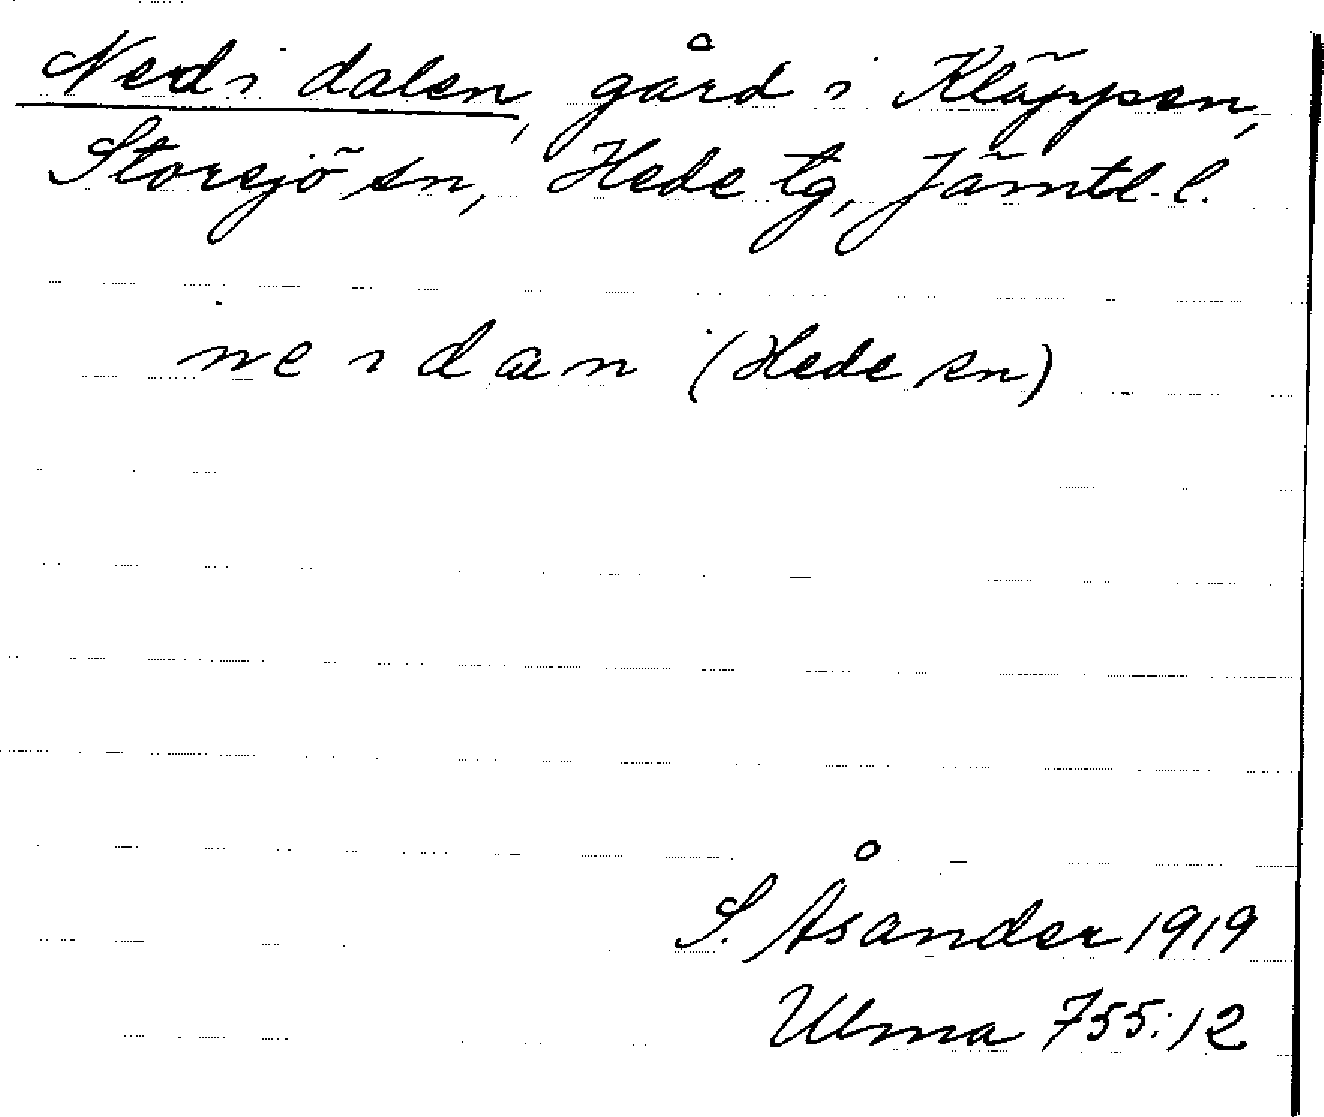 Ned i dalen, gård i Kläppen,
Storsjö sn, Hede tg, Jämtl. l.
ne i dan (Hede sn)
S. Åsander 1919
Ulma 755:12